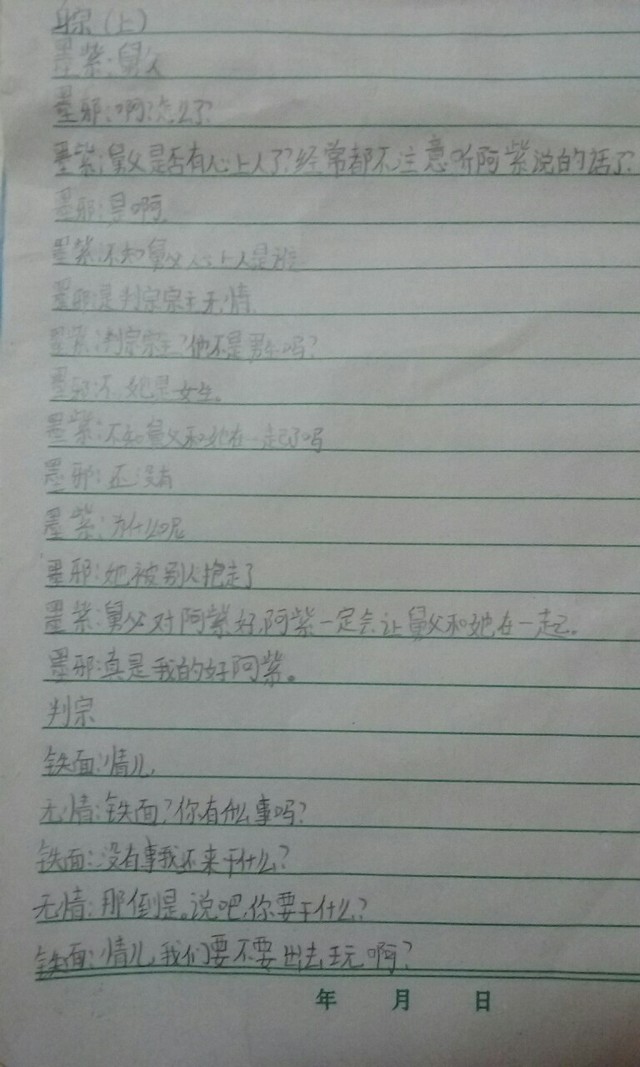 宗（上）
墨紫：舅父
墨邪：啊？怎么了？
墨紫：舅父是否有心上人了？经常都不注意听阿紫说的话了？
墨邪：是啊，
墨紫：不知舅父心上人是谁
墨邪：是判宗宗主无情，
墨紫：判宗宗主？他不是男生吗？
墨邪：不，她是女生。
墨紫：不知舅父和她在一起了吗
墨邪：还没有
墨紫：为什么呢
墨邪：她被别人抱走了
墨紫：舅父对阿紫好，阿紫一定会让舅父和她在一起。
墨邪：真是我的好阿紫。
判宗
铁面：情儿，
无情：铁面？你有什么事吗？
铁面：没有事我还来干什么？
无情：那倒是。说吧，你要干什么？
铁面：情儿，我们要不要出去玩啊？
年 月 日